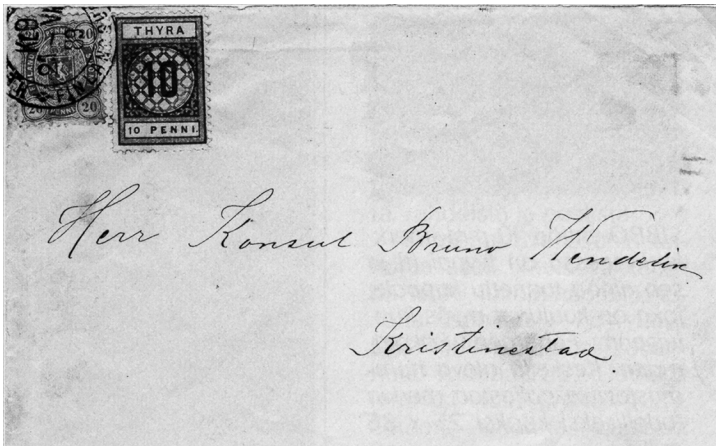 20 20
20 PENNI 20
THYRA
10
10 PENNI.
Herr Konsul Bruno Wendelin
Kristinestad